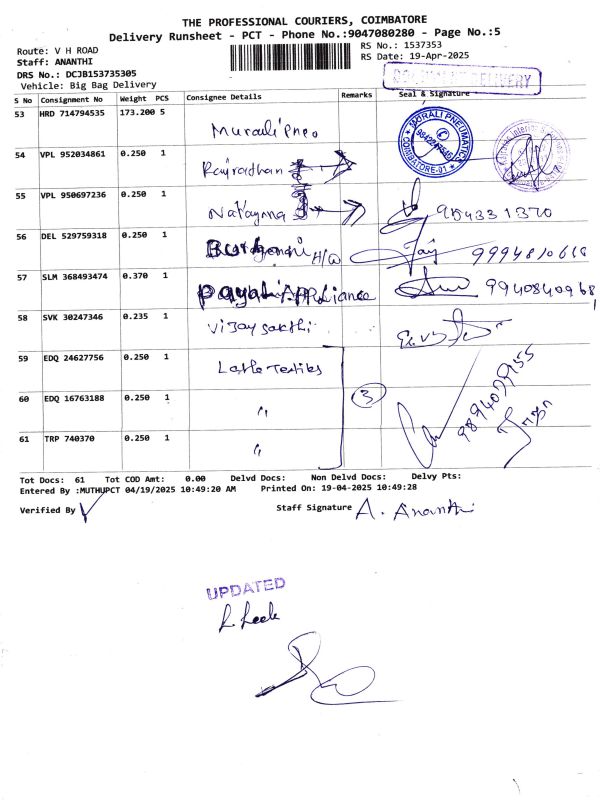 THE PROFESSIONAL COURIERS, COIMBATORE
Delivery Runsheet - PCT - Phone No.:9047080280 - Page No.:5
Route: V H ROAD
Staff: ANANTHI
DRS No.: DCJB153735305
Vehicle: Big Bag Delivery
RS No.: 1537353
RS Date: 19-Apr-2025
S No Consignment No Weight PCS Consignee Details Remarks Seal & Signature
53 HRD 714794535 173.200 5 Murali Pneo
MORALI PNEUMATICS COIMBATORE-01
54 VPL 952034861 0.250 1
55 VPL 950697236 0.250 1 9154331370
56 DEL 529759318 0.250 1 H/W 9994810618
57 SLM 368493474 0.370 1 Payal Appliance 9940840968
58 SVK 30247346 0.235 1 Vijay Sakthi
59 EDQ 24627756 0.250 1
60 EDQ 16763188 0.250 1 " 3 9894029955
61 TRP 740370 0.250 1 "
Tot Docs: 61 Tot COD Amt: 0.00 Delvd Docs: Non Delvd Docs: Delvy Pts:
Entered By :MUTHUPCT 04/19/2025 10:49:20 AM Printed On: 19-04-2025 10:49:28
Verified By Staff Signature A. Ananthi
UPDATED